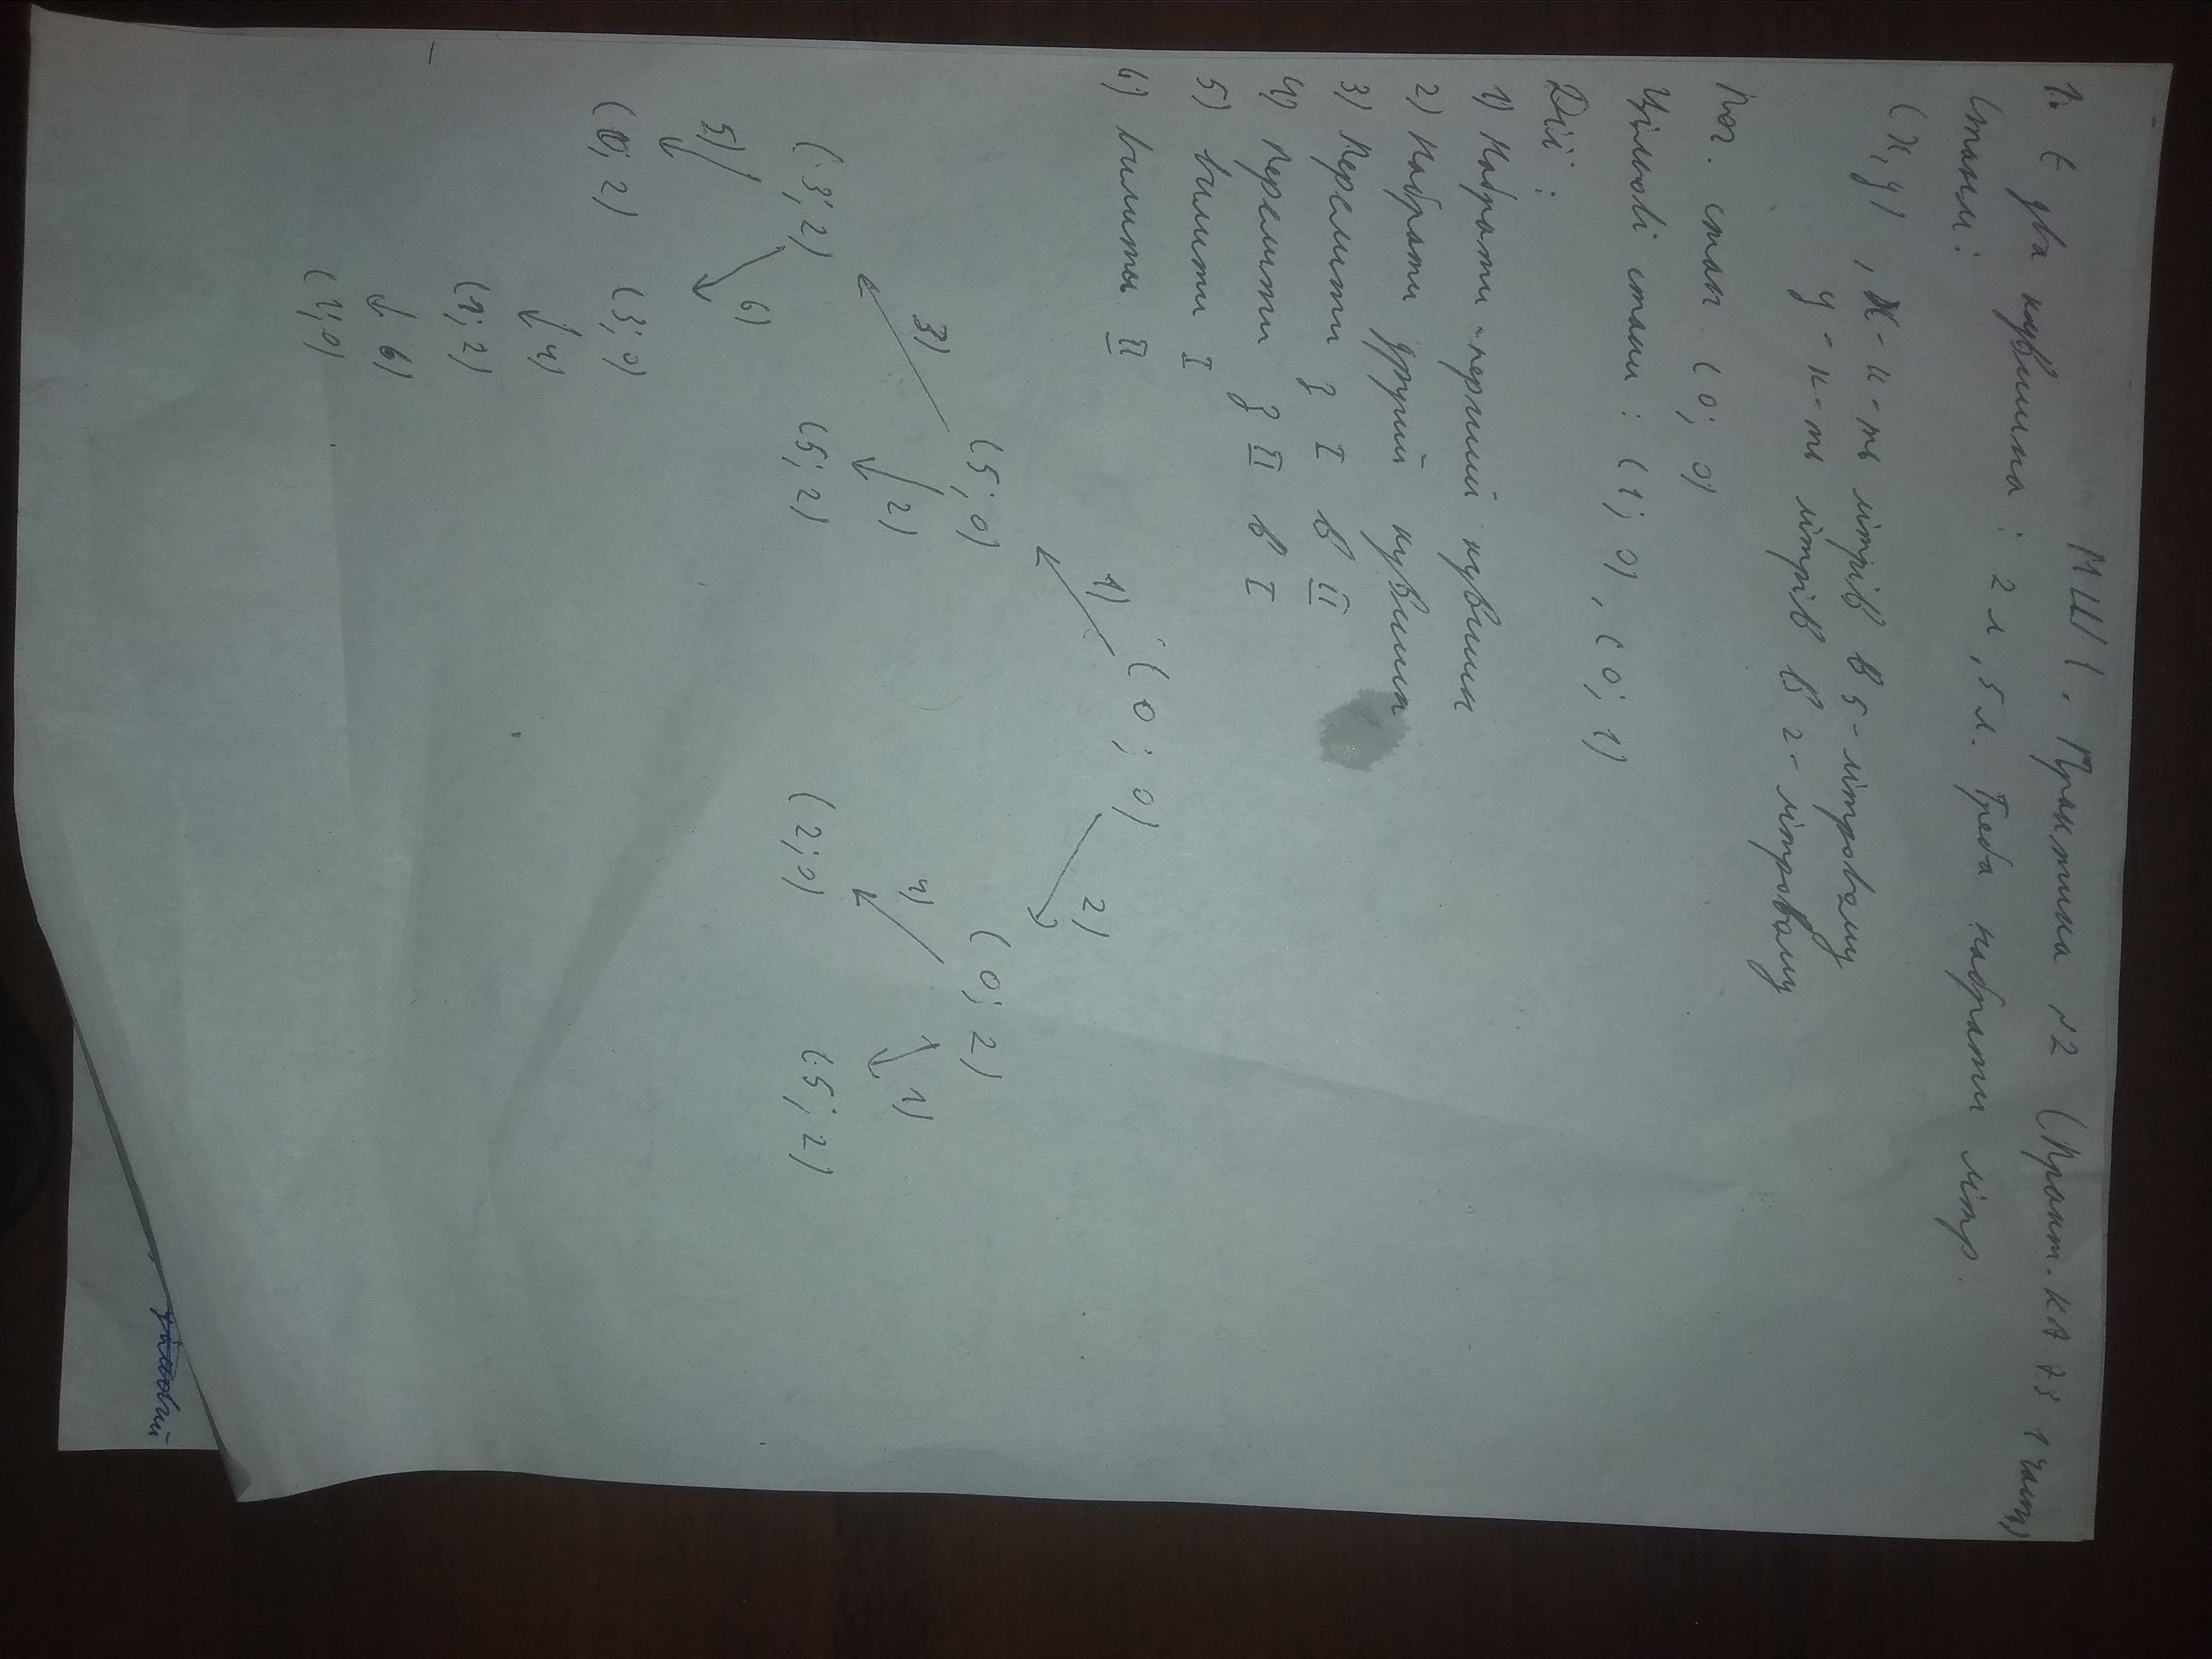 МШІ. Практика №2 (Практ. КА 73 1 част)
1. Є два кувшина : 2 л, 5 л. Треба набрати літр.
Стани:
(x, y) , x - к-ть літрів в 5-літровому
y - к-ть літрів в 2-літровому
Поч. стан (0; 0)
Цільові стани : (1; 0), (0; 1)
Дії :
1) Набрати перший кувшин
2) Набрати другий кувшин
3) Перелити з I в II
4) Перелити з II в I
5) вилити I
6) вилити II
(0; 0)
1) 2)
(5; 0) (0; 2)
3) 2) 4) 1)
(3; 2) (5; 2) (2; 0) (5; 2)
5) 6)
(0; 2) (3; 0)
4)
(1; 2)
6)
(1; 0)